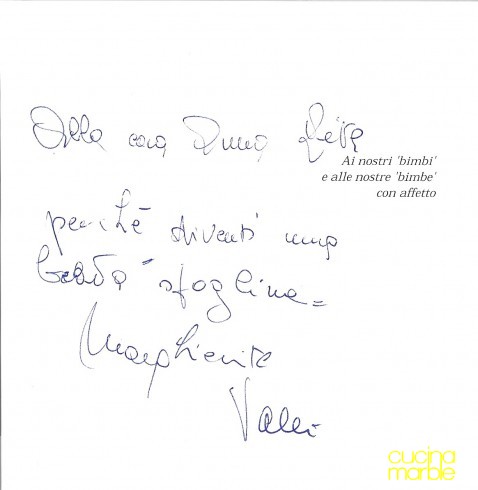 Alla cara Anna Rita
Ai nostri 'bimbi'
e alle nostre 'bimbe'
con affetto
perchè diventi una
brava sfoglina=
Margherita
Valli
cucina
marble